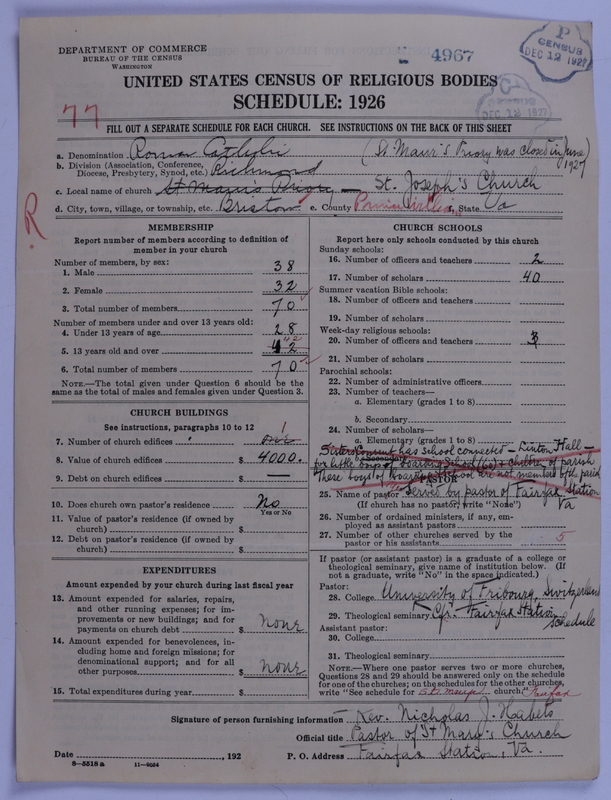 DEPARTMENT OF COMMERCE
BUREAU OF THE CENSUS
WASHINGTON
4967
P
CENSUS
DEC 12 1927
UNITED STATES CENSUS OF RELIGIOUS BODIES
SCHEDULE: 1926
77
CENSUS
DEC 12 1927
FILL OUT A SEPARATE SCHEDULE FOR EACH CHURCH. SEE INSTRUCTIONS ON THE BACK OF THIS SHEET
a. Denomination Roman Catholic (St. Maur's Priory was closed in June 1927)
b. Division (Association, Conference, Diocese, Presbytery, Synod, etc.) Richmond
c. Local name of church St Maur's Priory — St. Joseph's Church
d. City, town, village, or township, etc. Bristow e. County Prince William, State Va
R
MEMBERSHIP
Report number of members according to definition of
member in your church
Number of members, by sex:
1. Male 38
2. Female 32
3. Total number of members 70
Number of members under and over 13 years old:
4. Under 13 years of age 28
5. 13 years old and over 42
6. Total number of members 70
NOTE.—The total given under Question 6 should be the
same as the total of males and females given under Question 3.
CHURCH BUILDINGS
See instructions, paragraphs 10 to 12
7. Number of church edifices one 1
8. Value of church edifices $ 4000.
9. Debt on church edifices $ —
10. Does church own pastor's residence? No
Yes or No
11. Value of pastor's residence (if owned by
church) $
12. Debt on pastor's residence (if owned by
church) $
EXPENDITURES
Amount expended by your church during last fiscal year
13. Amount expended for salaries, repairs,
and other running expenses; for im-
provements or new buildings; and for
payments on church debt $ none
14. Amount expended for benevolences, in-
cluding home and foreign missions; for
denominational support; and for all
other purposes $ none
15. Total expenditures during year $
CHURCH SCHOOLS
Report here only schools conducted by this church
Sunday schools:
16. Number of officers and teachers 2
17. Number of scholars 40
Summer vacation Bible schools:
18. Number of officers and teachers
19. Number of scholars
Week-day religious schools:
20. Number of officers and teachers
21. Number of scholars
Parochial schools:
22. Number of administrative officers
23. Number of teachers—
a. Elementary (grades 1 to 8)
b. Secondary
24. Number of scholars—
a. Elementary (grades 1 to 8)
Sisters Convent has School connected — Linton Hall —
b. Secondary
for little boys Boarding School (60) & children of parish
These boys of Boarding School are not members of the parish
PASTOR
25. Name of pastor Served by pastor of Fairfax Station Va
(If church has no pastor, write "None")
26. Number of ordained ministers, if any, em-
ployed as assistant pastors
27. Number of other churches served by the
pastor or his assistants 5
If pastor (or assistant pastor) is a graduate of a college or
theological seminary, give name of institution below. (If
not a graduate, write "No" in the space indicated.)
Pastor:
28. College University of Fribourg, Switzerland
29. Theological seminary Cf. Fairfax Station schedule
Assistant pastor:
30. College
31. Theological seminary
NOTE.—Where one pastor serves two or more churches,
Questions 28 and 29 should be answered only on the schedule
for one of the churches; on the schedules for the other churches,
write "See schedule for St Marys church." Fairfax
Signature of person furnishing information Rev. Nicholas J. Habets
Official title Pastor of St Mary's Church
Date , 192 P. O. Address Fairfax Station, Va.
8—5518 a 11—9034